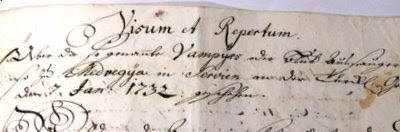 Visum et Repertum.
Über die so genannte Vampyrs oder Blut aussauger
so zu Medvegya in Servien an der
den 7. Jan: 1732 geschehen.